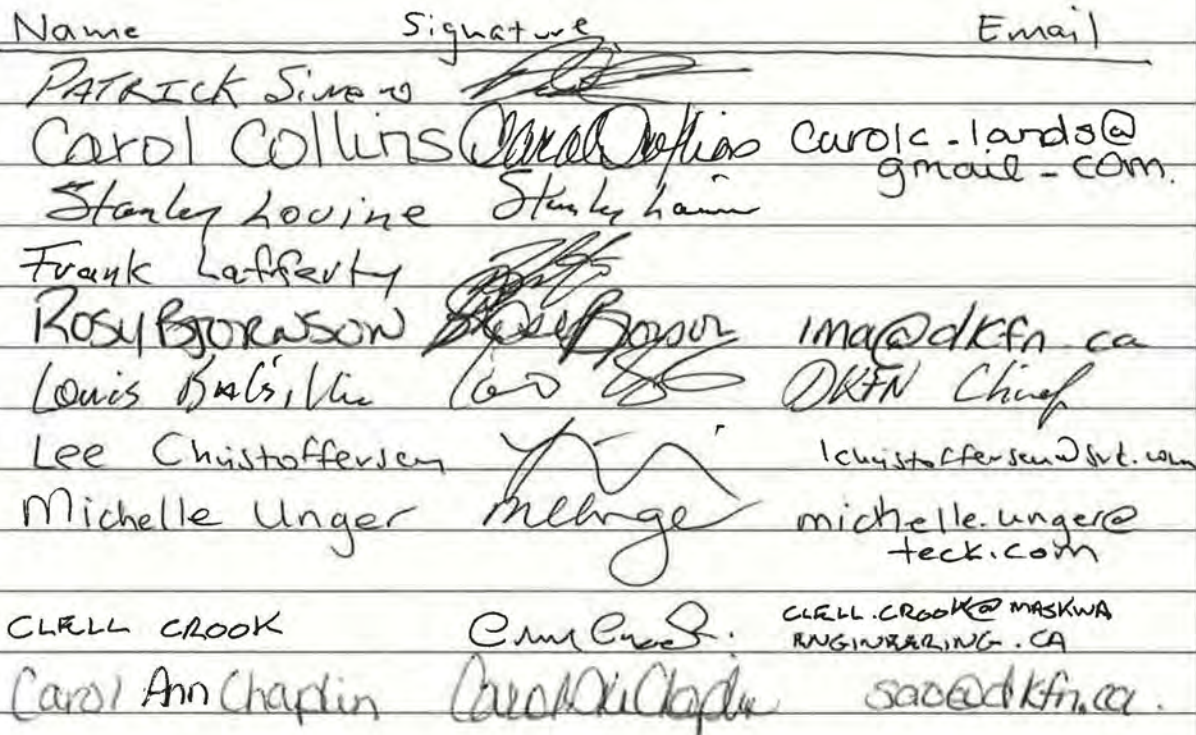 Name Signature Email
PATRICK Simon
Carol Collins Carol Collins carolc.lands@
gmail.com.
Stanley Louine Stanley
Frank Lafferty
ROSY BJORNSON Bjornson ima@dkfn.ca
Louis Balsillie DKFN Chief
Lee Christoffersen lchristoffersen@srk.com
Michelle Unger MUnger michelle.unger@
teck.com
CLELL CROOK CLELL.CROOK@MASKWA
ENGINEERING.CA
Carol Ann Chaplin Carol Ann Chaplin sao@dkfn.ca.